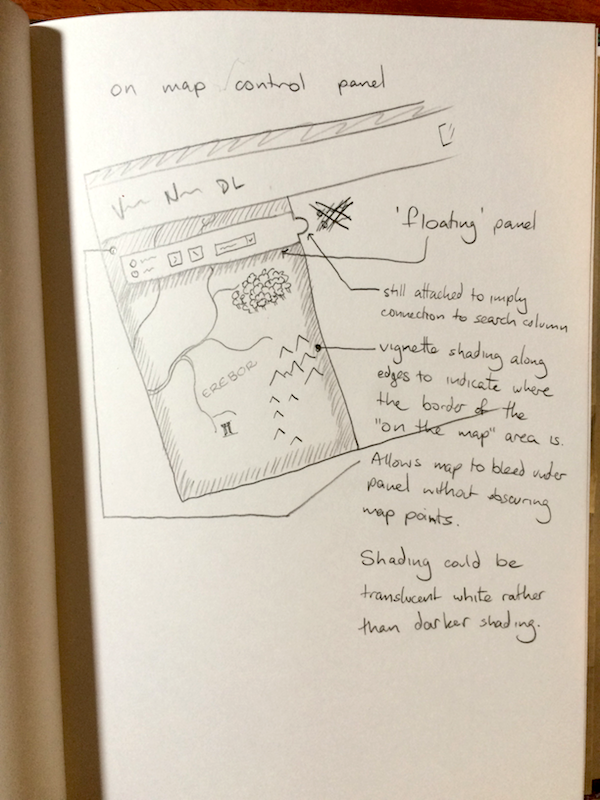 on map control panel
DL
'floating' panel
still attached to imply
connection to search column
vignette shading along
edges to indicate where
the border of the
"on the map" area is.
EREBOR
Allows map to bleed under
panel without obscuring
map points.
Shading could be
translucent white rather
than darker shading.